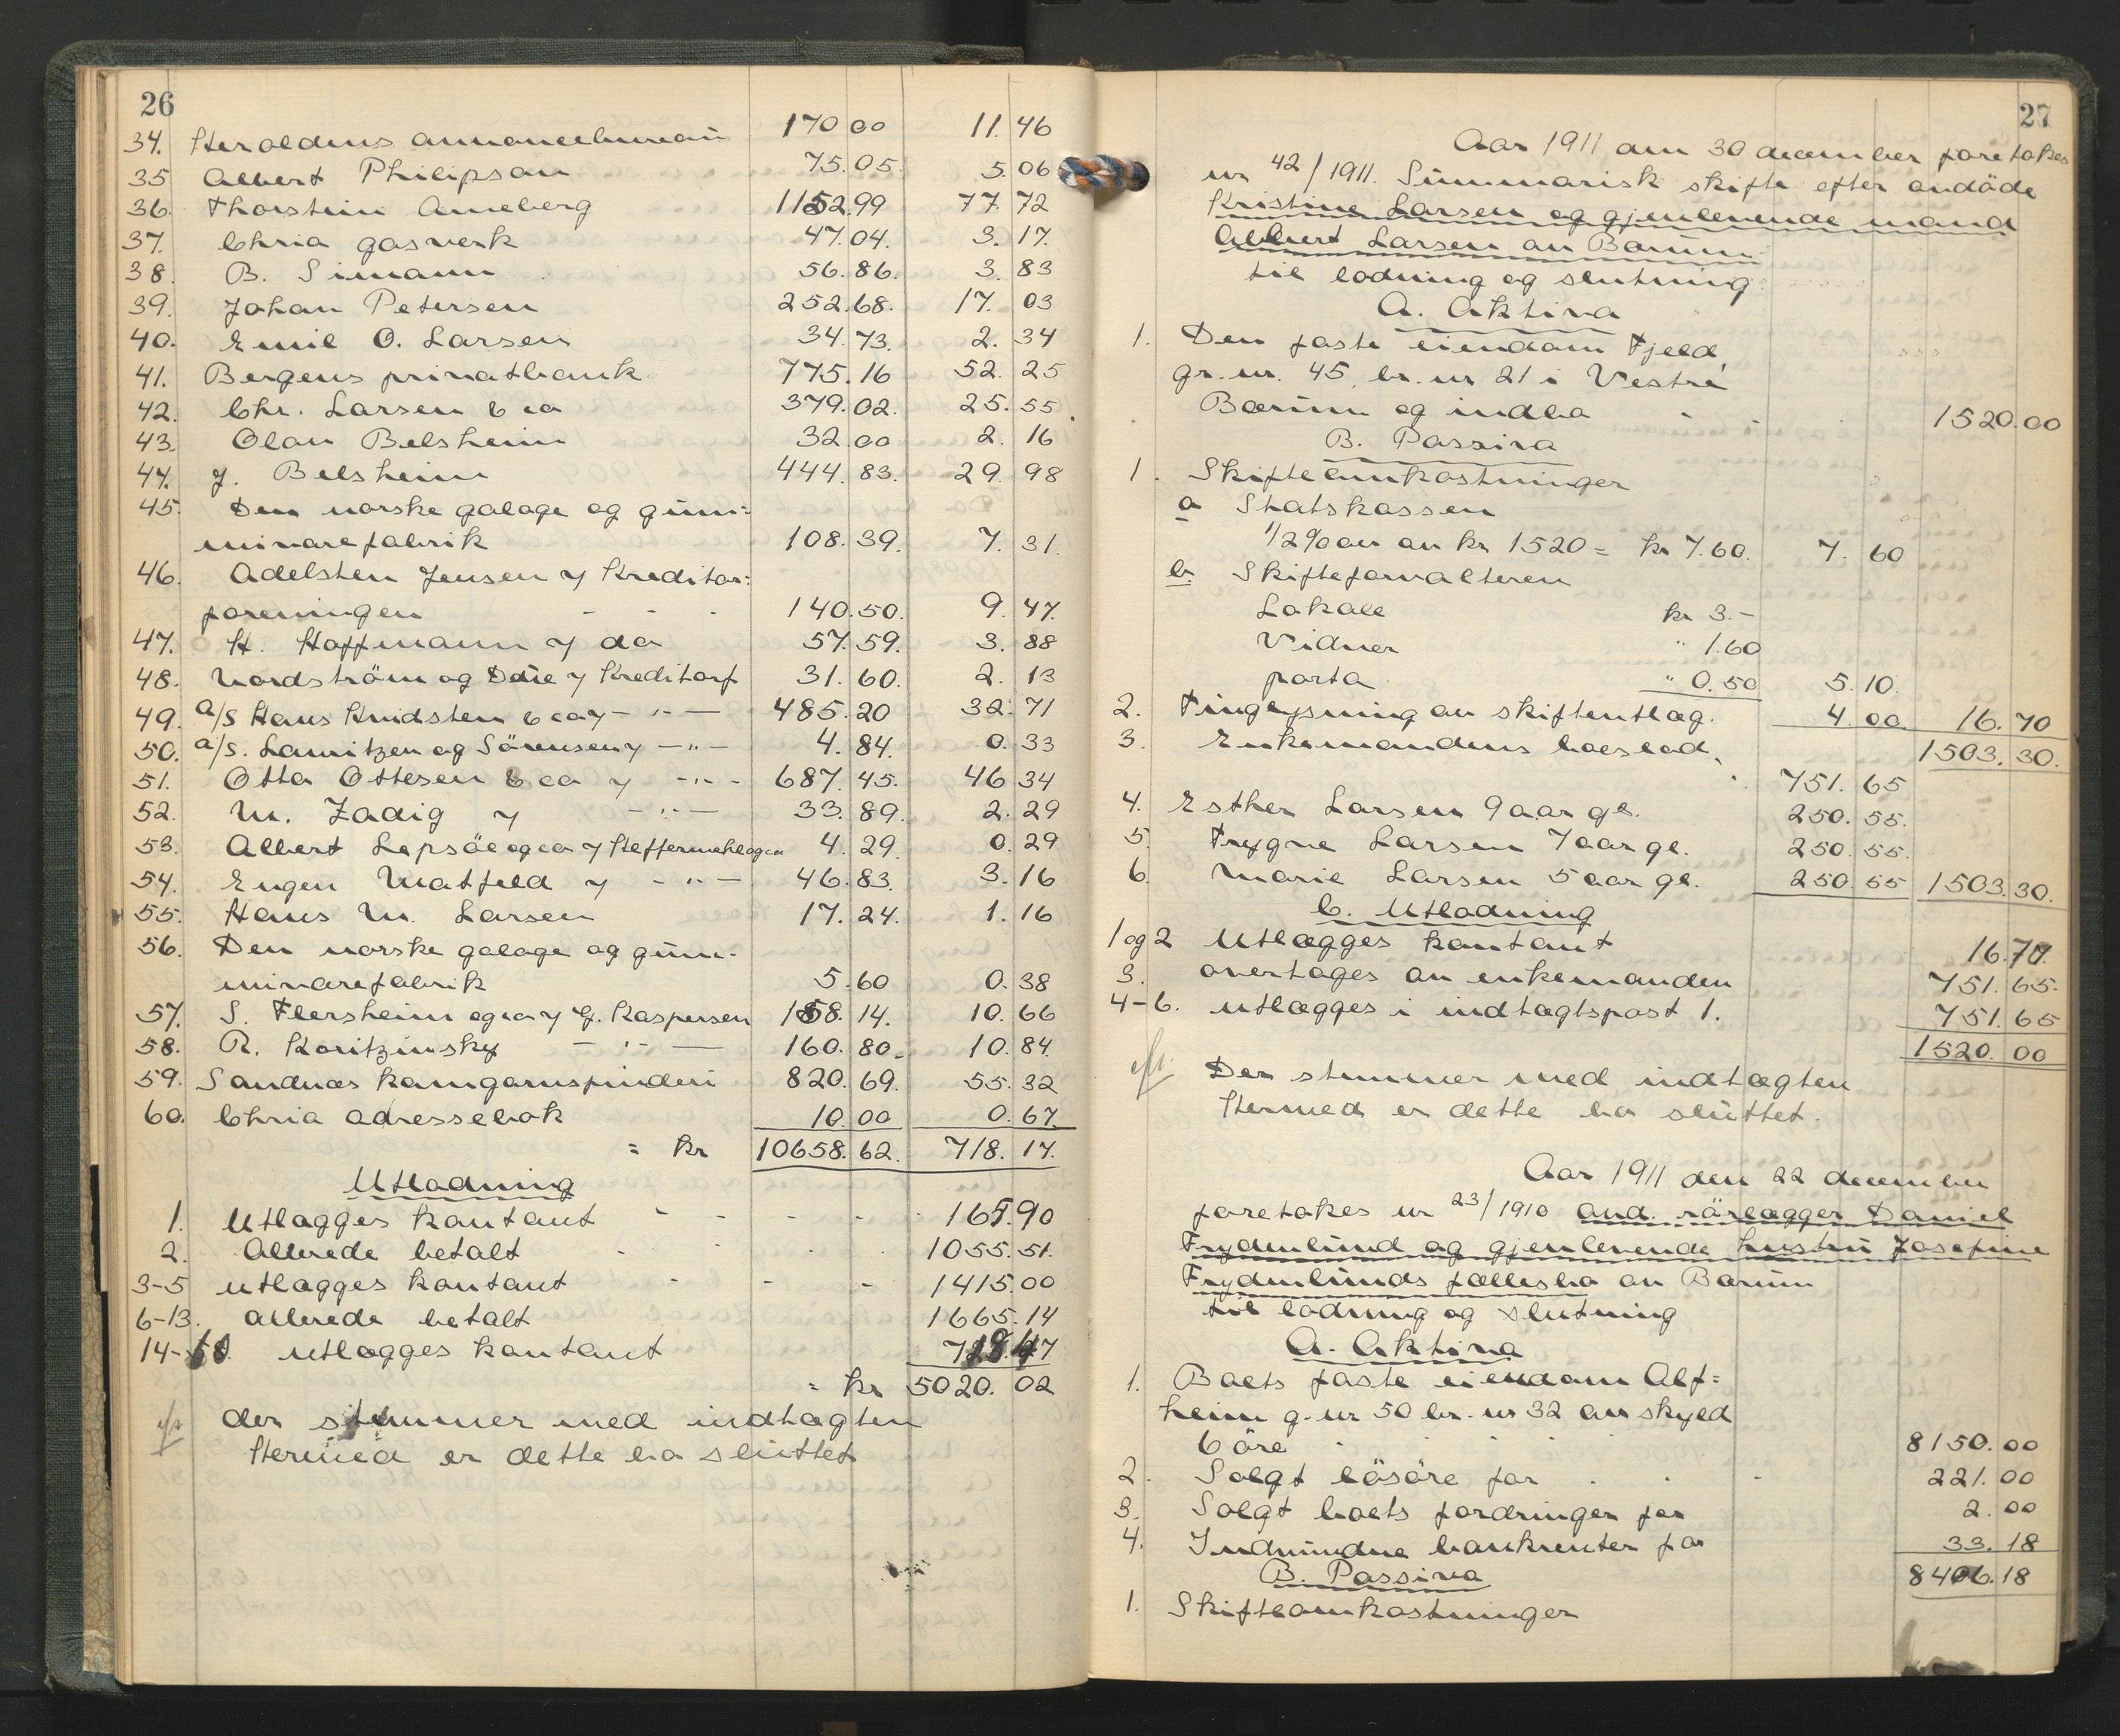 26
34. Heroldens annoncebureau 170 00 11. 46
35 Albert Philipson 75. 05. 5. 06
36. Thorstein Anneberg 1152. 99 77. 72
37. Chria gasverk 47. 04. 3. 17.
38. B. Simann 56. 86. 3. 83
39. Johan Petersen 252. 68. 17. 03
40. Emil O. Larsen 34. 73. 2. 34
41. Bergens privatbank 775. 16 52. 25
42. Chr. Larsen & co 379. 02. 25. 55
43. Olav Belsheim 32. 00 2. 16
44. J. Belsheim 444. 83. 29. 98
45. Den norske galoge og gum=
mivarefabrik 108. 39. 7. 31.
46. Adelsten Jensen v/ Kreditor=
foreningen - - 140. 50. 9. 47.
47. H. Hoffmann v/ do 57. 59. 3. 88
48. Nordström og Due v/ Kreditorf 31. 60. 2. 13
49. A/S Hans Knudsten & co v/ -"- 485. 20 32. 71
50. A/S. Lauritzen og Sörensen v/ -"- 4. 84. 0. 33
51. Otto Ottesen & co v/ -"- 687. 45. 46 34
52. M. Zadig v/ -"- 33. 89. 2. 29
53. Albert Lepsöe og co v/ 4. 29. 0. 29
54. Eugen Matfeld v/ -"- 46. 83. 3. 16
55. Hans M. Larsen 17. 24. 1. 16
56. Den norske galoge og gum-
mivarefabrik 5. 60 0. 38
57. S. Flersheim og co v/ G. Kaspersen 158. 14. 10. 66
58. R. Koritzinsky - " - 160. 80. 10. 84.
59. Sandnæs kamgarnspinderi 820. 69. 55. 32
60. Chria adressebok 10. 00 0. 67.
= kr 10658. 62. 718. 17.
Utlodning
1. Utlægges kontant - - - 165. 90
2. Allerede betalt 1055. 51.
3-5 utlægges kontant - - - 1415. 00
6-13. allerede betalt 1665. 14
14-60. utlægges kontant 718. 47
= kr 5020. 02
der stemmer med indtægten
Hermed er dette bo sluttet
27
Aar 1911 den 30 december foretokes
nr 42/1911. Summarisk skifte efter avdöde
Kristine Larsen og gjenlevende mand
Albert Larsen av Bærum
til lodning og slutning.
A. Aktiva
1. Den faste eiendom Fjeld,
gr. nr. 45, br. nr 21 i Vestre
Bærum og indbo - 1520. 00
B. Passiva
1. Skifteomkostninger
a Statskassen
1/2 % av kr 1520 = kr 7.60. 7. 60
b. Skifteforvalteren
Lokale kr 3.-
Vidner " 1.60
porto " 0.50 5. 10.
2. Tinglysning av skifteutlæg. 4. 00. 16. 70
3. Enkemandens boeslod. 1503. 30.
751. 65
4. Esther Larsen 9 aar gl. 250. 55.
5. Trygve Larsen 7 aar gl. 250. 55.
6. Marie Larsen 5 aar gl. 250. 55 1503. 30.
C. Utlodning
1 og 2 Utlægges kontant 16. 70.
3. overtages av enkemanden 751. 65.
4-6. utlægges i indtægtspost 1. 751. 65
1520. 00
Der stemmer med indtægten
Hermed er dette bo sluttet.
Aar 1911 den 22 december
foretokes nr 23/1910 avd. rörlægger Daniel
Frydenlund og gjenlevende hustru Josefine
Frydenlunds fællesbo av Bærum
til lodning og slutning
A. Aktiva
1. Boets faste eiendom Alf=
heim g. nr 50 br. nr 32 av skyld
6 öre 8150. 00
2. Solgt lösöre for 221. 00
3. Solgt boets fordringer for 2. 00
4. Indvundne bankrenter for 33. 18
8406. 18
B. Passiva
1. Skifteomkostninger